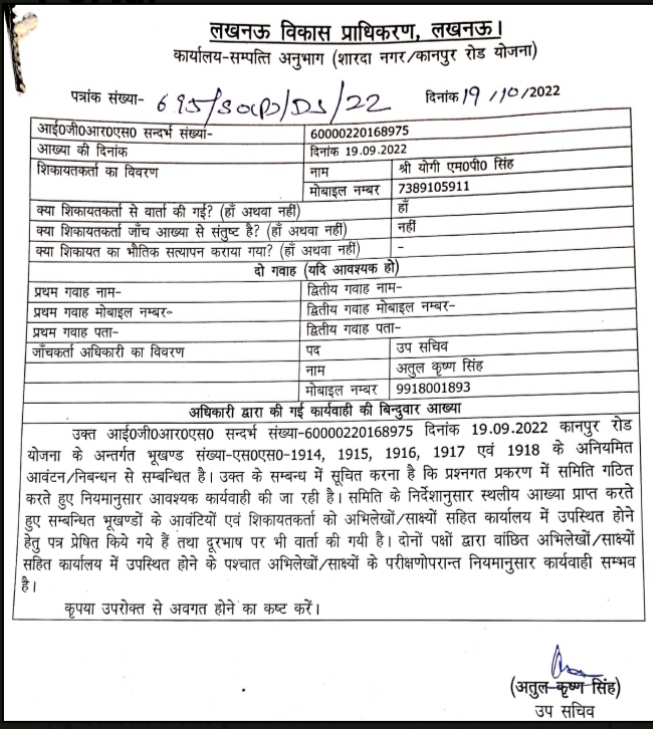 लखनऊ विकास प्राधिकरण, लखनऊ।
कार्यालय-सम्पत्ति अनुभाग (शारदा नगर/कानपुर रोड योजना)
पत्रांक संख्या- 695/SO(P)/DS/22 दिनांक 19/10/2022
आई0जी0आर0एस0 सन्दर्भ संख्या- 60000220168975
आख्या की दिनांक दिनांक 19.09.2022
शिकायतकर्ता का विवरण नाम श्री योगी एम0पी0 सिंह
मोबाइल नम्बर 7389105911
क्या शिकायतकर्ता से वार्ता की गई? (हाँ अथवा नहीं) हाँ
क्या शिकायतकर्ता जाँच आख्या से संतुष्ट है? (हाँ अथवा नहीं) नहीं
क्या शिकायत का भौतिक सत्यापन कराया गया? (हाँ अथवा नहीं) -
दो गवाह (यदि आवश्यक हो)
प्रथम गवाह नाम- द्वितीय गवाह नाम-
प्रथम गवाह मोबाइल नम्बर- द्वितीय गवाह मोबाइल नम्बर-
प्रथम गवाह पता- द्वितीय गवाह पता-
जाँचकर्ता अधिकारी का विवरण पद उप सचिव
नाम अतुल कृष्ण सिंह
मोबाइल नम्बर 9918001893
अधिकारी द्वारा की गई कार्यवाही की बिन्दुवार आख्या
उक्त आई0जी0आर0एस0 सन्दर्भ संख्या-60000220168975 दिनांक 19.09.2022 कानपुर रोड
योजना के अन्तर्गत भूखण्ड संख्या-एस0एस0-1914, 1915, 1916, 1917 एवं 1918 के अनियमित
आवंटन/निबन्धन से सम्बन्धित है। उक्त के सम्बन्ध में सूचित करना है कि प्रश्नगत प्रकरण में समिति गठित
करते हुए नियमानुसार आवश्यक कार्यवाही की जा रही है। समिति के निर्देशानुसार स्थलीय आख्या प्राप्त करते
हुए सम्बन्धित भूखण्डों के आवंटियों एवं शिकायतकर्ता को अभिलेखों/साक्ष्यों सहित कार्यालय में उपस्थित होने
हेतु पत्र प्रेषित किये गये हैं तथा दूरभाष पर भी वार्ता की गयी है। दोनों पक्षों द्वारा वांछित अभिलेखों/साक्ष्यों
सहित कार्यालय में उपस्थित होने के पश्चात अभिलेखों/साक्ष्यों के परीक्षणोपरान्त नियमानुसार कार्यवाही सम्भव
है।
कृपया उपरोक्त से अवगत होने का कष्ट करें।
(अतुल कृष्ण सिंह)
उप सचिव